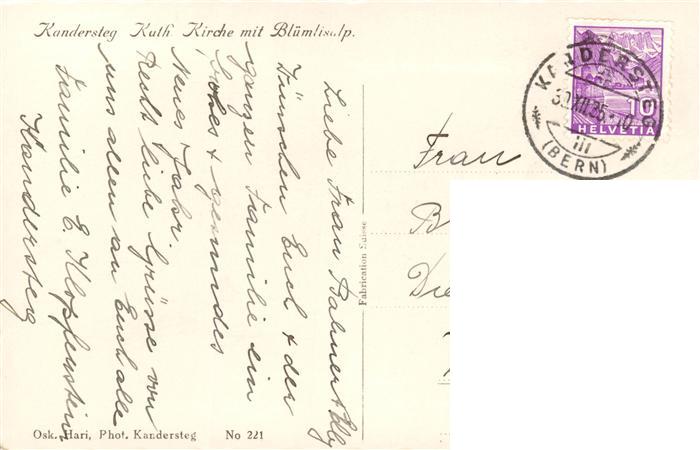 Kandersteg Kath Kirche mit Blümlisalp.
Liebe Frau
Wünschen Euch & der
ganzen Familie ein
frohes & gesundes
Neues Jahr.
Recht liebe Grüsse von
uns allen an Euch alle
Familie E. Klopfenstein
Kandersteg
Osk. Hari, Phot. Kandersteg No 221
Fabrication Suisse
Frau
B
Die
10
HELVETIA
KANDERSTEG
30.XII.35.-10
III
(BERN)